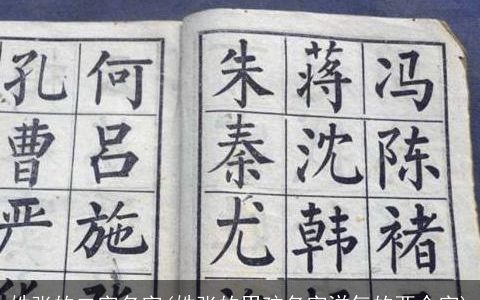 冯陈褚
蒋沈韩
朱秦尤
何吕施
孔曹严
姓张的字名字(姓张的男孩名字洋气的两个字)